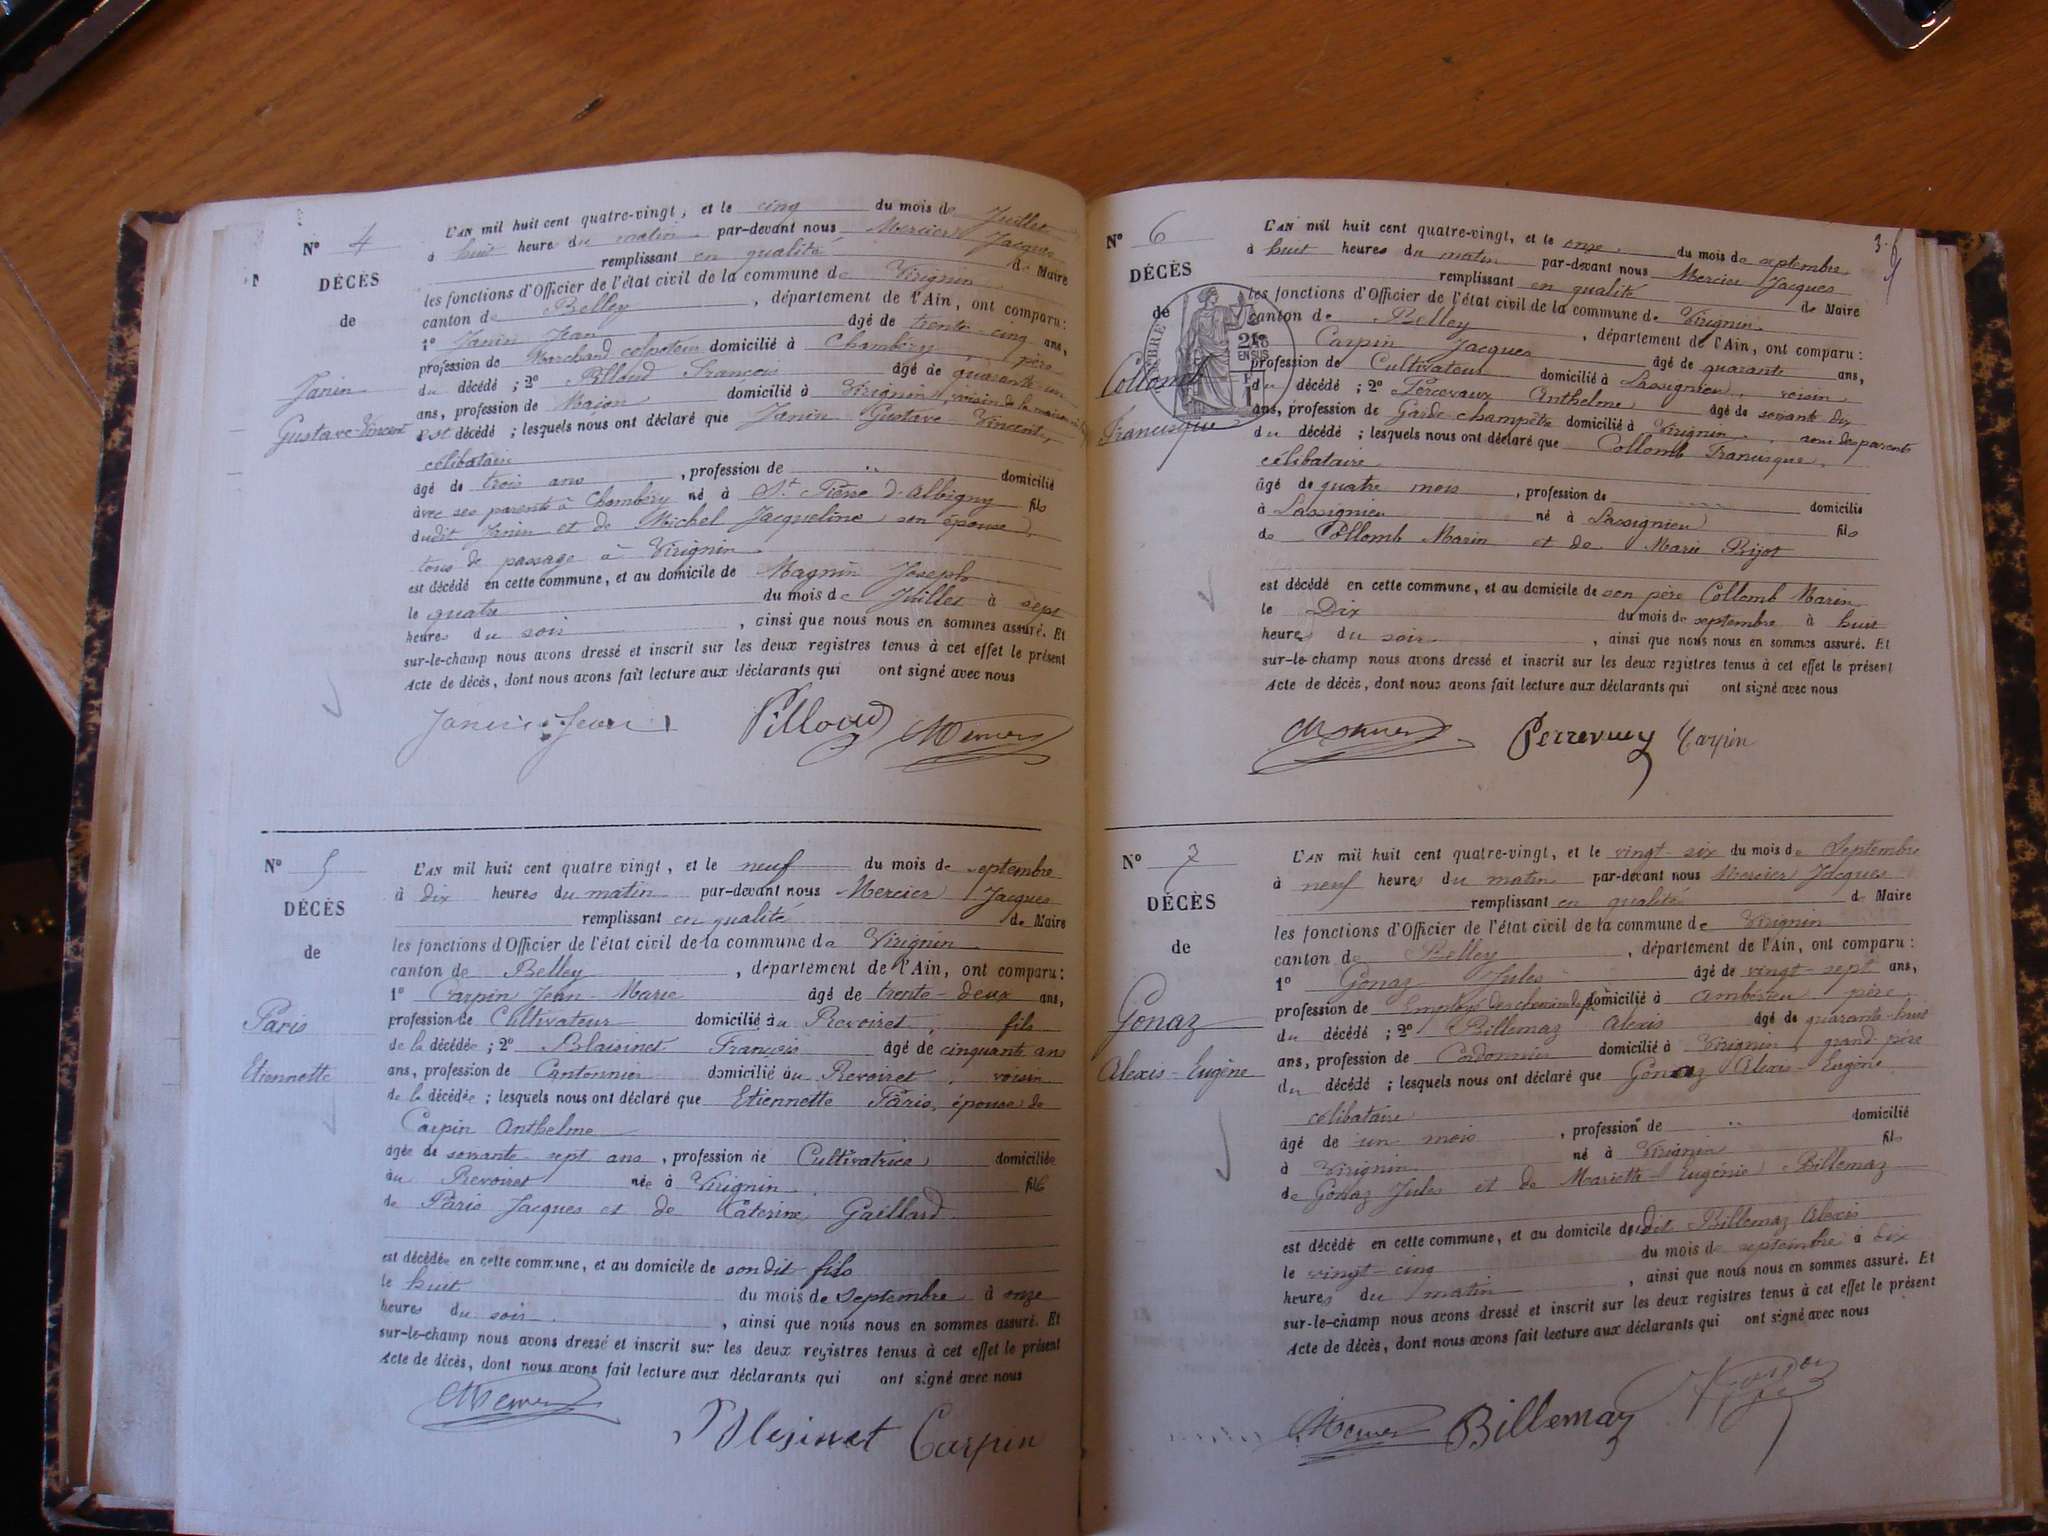 N° 4
DÉCÈS
de
Janin
Gustave-Vincent
L'AN mil huit cent quatre-vingt, et le cinq du mois de Juillet
à huit heures du matin par-devant nous Mercier Jacques
remplissant en qualité de Maire
les fonctions d'Officier de l'état civil de la commune de Virignin
canton de Belley, département de l'Ain, ont comparu:
1° Janin Jean âgé de trente-cinq ans,
profession de Marchand colporteur domicilié à Chambéry, père
du décédé; 2° Pilloud François âgé de quarante-un
ans, profession de Maçon domicilié à Virignin, voisin de la maison où
est décédé; lesquels nous ont déclaré que Janin Gustave Vincent,
célibataire
âgé de trois ans, profession de " domicilié
avec ses parents à Chambéry né à St Pierre d'Albigny fils
dudit Janin et de Michel Jacqueline son épouse,
tous de passage à Virignin
est décédé en cette commune, et au domicile de Magnin Joseph
le quatre du mois de Juillet à sept
heures du soir, ainsi que nous nous en sommes assuré. Et
sur-le-champ nous avons dressé et inscrit sur les deux registres tenus à cet effet le présent
Acte de décès, dont nous avons fait lecture aux déclarants qui ont signé avec nous
Janin Jean Pilloud Mercier
N° 5
DÉCÈS
de
Paris
Etiennette
L'AN mil huit cent quatre vingt, et le neuf du mois de septembre
à dix heures du matin par-devant nous Mercier Jacques
remplissant en qualité de Maire
les fonctions d'Officier de l'état civil de la commune de Virignin
canton de Belley, département de l'Ain, ont comparu:
1° Carpin Jean-Marie âgé de trente-deux ans,
profession de Cultivateur domicilié au Revoiret, fils
de la décédée; 2° Blaisinet François âgé de cinquante ans
ans, profession de Cantonnier domicilié au Revoiret, voisin
de la décédée; lesquels nous ont déclaré que Etiennette Paris, épouse de
Carpin Anthelme
âgée de soixante-sept ans, profession de Cultivatrice domiciliée
au Revoiret née à Virignin fille
de Paris Jacques et de Caterine Gaillard
est décédée en cette commune, et au domicile de son dit fils
le huit du mois de septembre à onze
heures du soir, ainsi que nous nous en sommes assuré. Et
sur-le-champ nous avons dressé et inscrit sur les deux registres tenus à cet effet le présent
Acte de décès, dont nous avons fait lecture aux déclarants qui ont signé avec nous
Mercier Blesinet Carpin
3.
N° 6
DÉCÈS
de
Collomb
Francisque
L'AN mil huit cent quatre-vingt, et le onze du mois de septembre
à huit heures du matin par-devant nous Mercier Jacques
remplissant en qualité de Maire
les fonctions d'Officier de l'état civil de la commune de Virignin
canton de Belley, département de l'Ain, ont comparu:
Carpin Jacques âgé de quarante ans,
profession de Cultivateur domicilié à Lassignieu, voisin
du décédé; 2° Percevaux Anthelme âgé de soixante dix
ans, profession de Garde champêtre domicilié à Virignin, ami des parents
du décédé; lesquels nous ont déclaré que Collomb Francisque,
célibataire
âgé de quatre mois, profession de domicilié
à Lassignieu né à Lassignieu fils
de Collomb Marin et de Marie Bijot
est décédé en cette commune, et au domicile de son père Collomb Marin
le Dix du mois de septembre à huit
heures du soir, ainsi que nous nous en sommes assuré. Et
sur-le-champ nous avons dressé et inscrit sur les deux registres tenus à cet effet le présent
Acte de décès, dont nous avons fait lecture aux déclarants qui ont signé avec nous
Mercier Carpin
N° 7
DÉCÈS
de
Gonaz
Alexis-Eugène
L'AN mil huit cent quatre-vingt, et le vingt-six du mois de Septembre
à neuf heures du matin par-devant nous Mercier Jacques
remplissant en qualité de Maire
les fonctions d'Officier de l'état civil de la commune de Virignin
canton de Belley, département de l'Ain, ont comparu:
1° Gonaz Jules âgé de vingt-sept ans,
profession de Employé des chemins de fer domicilié à Ambérieu père
du décédé; 2° Billemaz Alexis âgé de quarante-huit
ans, profession de Cordonnier domicilié à Virignin, grand père
du décédé; lesquels nous ont déclaré que Gonaz Alexis-Eugène
célibataire
âgé de un mois, profession de " domicilié
à Virignin né à Virignin fils
de Gonaz Jules et de Mariette Eugénie Billemaz
est décédé en cette commune, et au domicile dudit Billemaz Alexis
le vingt-cinq du mois de septembre à dix
heures du matin, ainsi que nous nous en sommes assuré. Et
sur-le-champ nous avons dressé et inscrit sur les deux registres tenus à cet effet le présent
Acte de décès, dont nous avons fait lecture aux déclarants qui ont signé avec nous
Mercier Billemaz